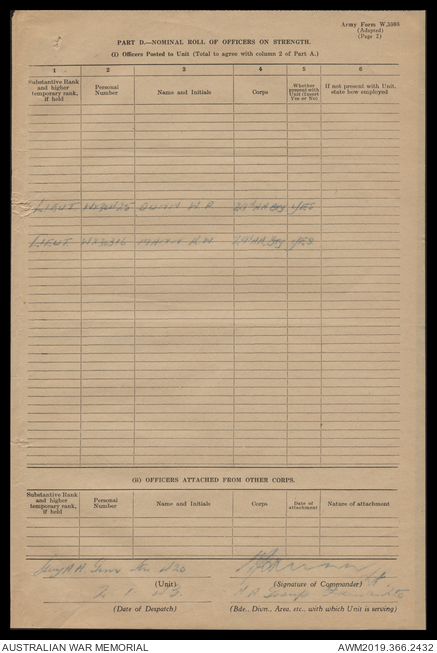 Army Form W.3008
(Adapted)
(Page 2)
PART D.—NOMINAL ROLL OF OFFICERS ON STRENGTH.
(i) Officers Posted to Unit (Total to agree with column 2 of Part A.)
1 2 3 4 5 6
Substantive Rank and higher temporary rank, if held
Personal Number
Name and Initials
Corps
Whether present with Unit (Insert Yes or No)
If not present with Unit, state how employed
LIEUT YES
LIEUT MANN A W YES
(ii) OFFICERS ATTACHED FROM OTHER CORPS.
Substantive Rank and higher temporary rank, if held
Personal Number
Name and Initials
Corps
Date of attachment
Nature of attachment
(Unit)
(Signature of Commander)
(Date of Despatch)
(Bde., Divn., Area, etc., with which Unit is serving)
AUSTRALIAN WAR MEMORIAL
AWM2019.366.2432